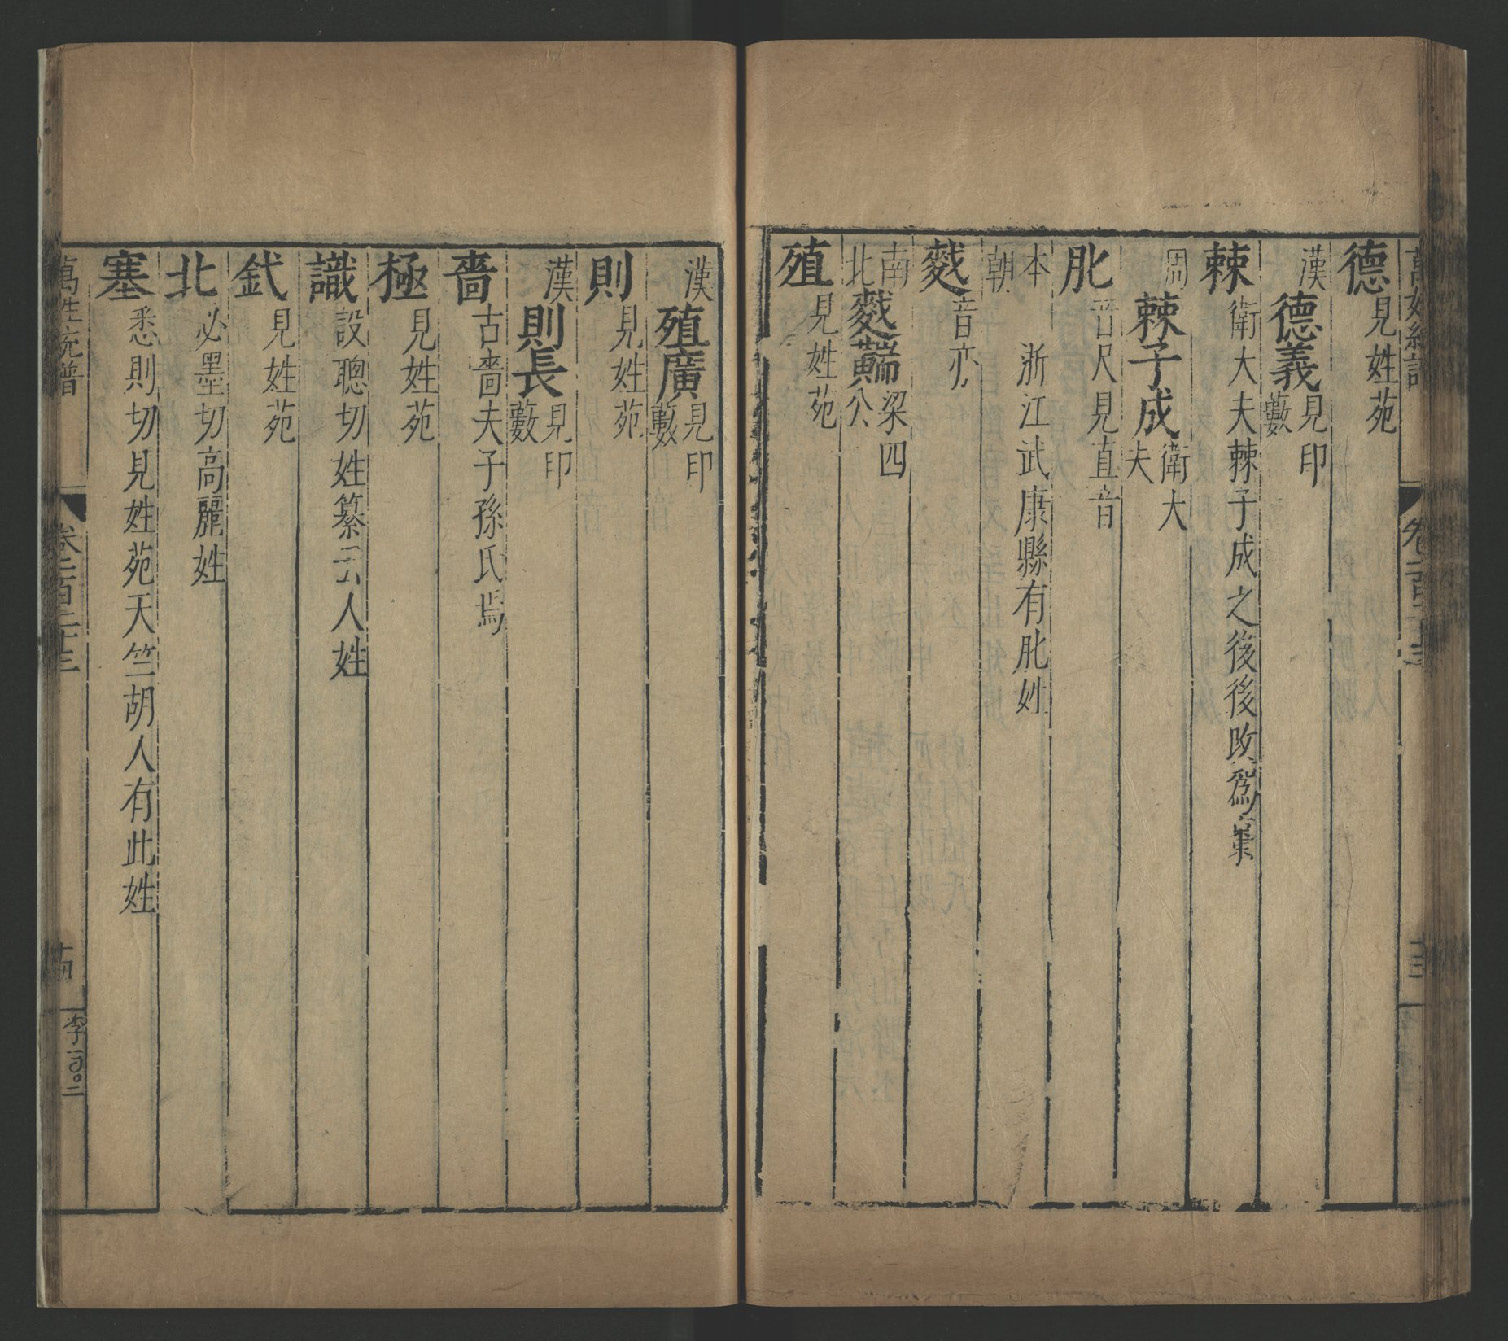 萬姓統譜
德見姓苑
漢德義見印藪
棘衛大夫棘子成之後後改爲棗
周棘子成衛大夫
肶音尺見直音
本朝 浙江武康縣有肶姓
㚆音亦
南北 梁四公
殖見姓苑
漢殖廣見印藪
則見姓苑
漢則長見印藪
嗇古嗇夫子孫氏焉
極見姓苑
識設聰切姓纂云人姓
鉽見姓苑
北必墨切高麗姓
塞悉則切見姓苑天竺胡人有此姓
萬姓統譜
卷之百二十三
十四
李